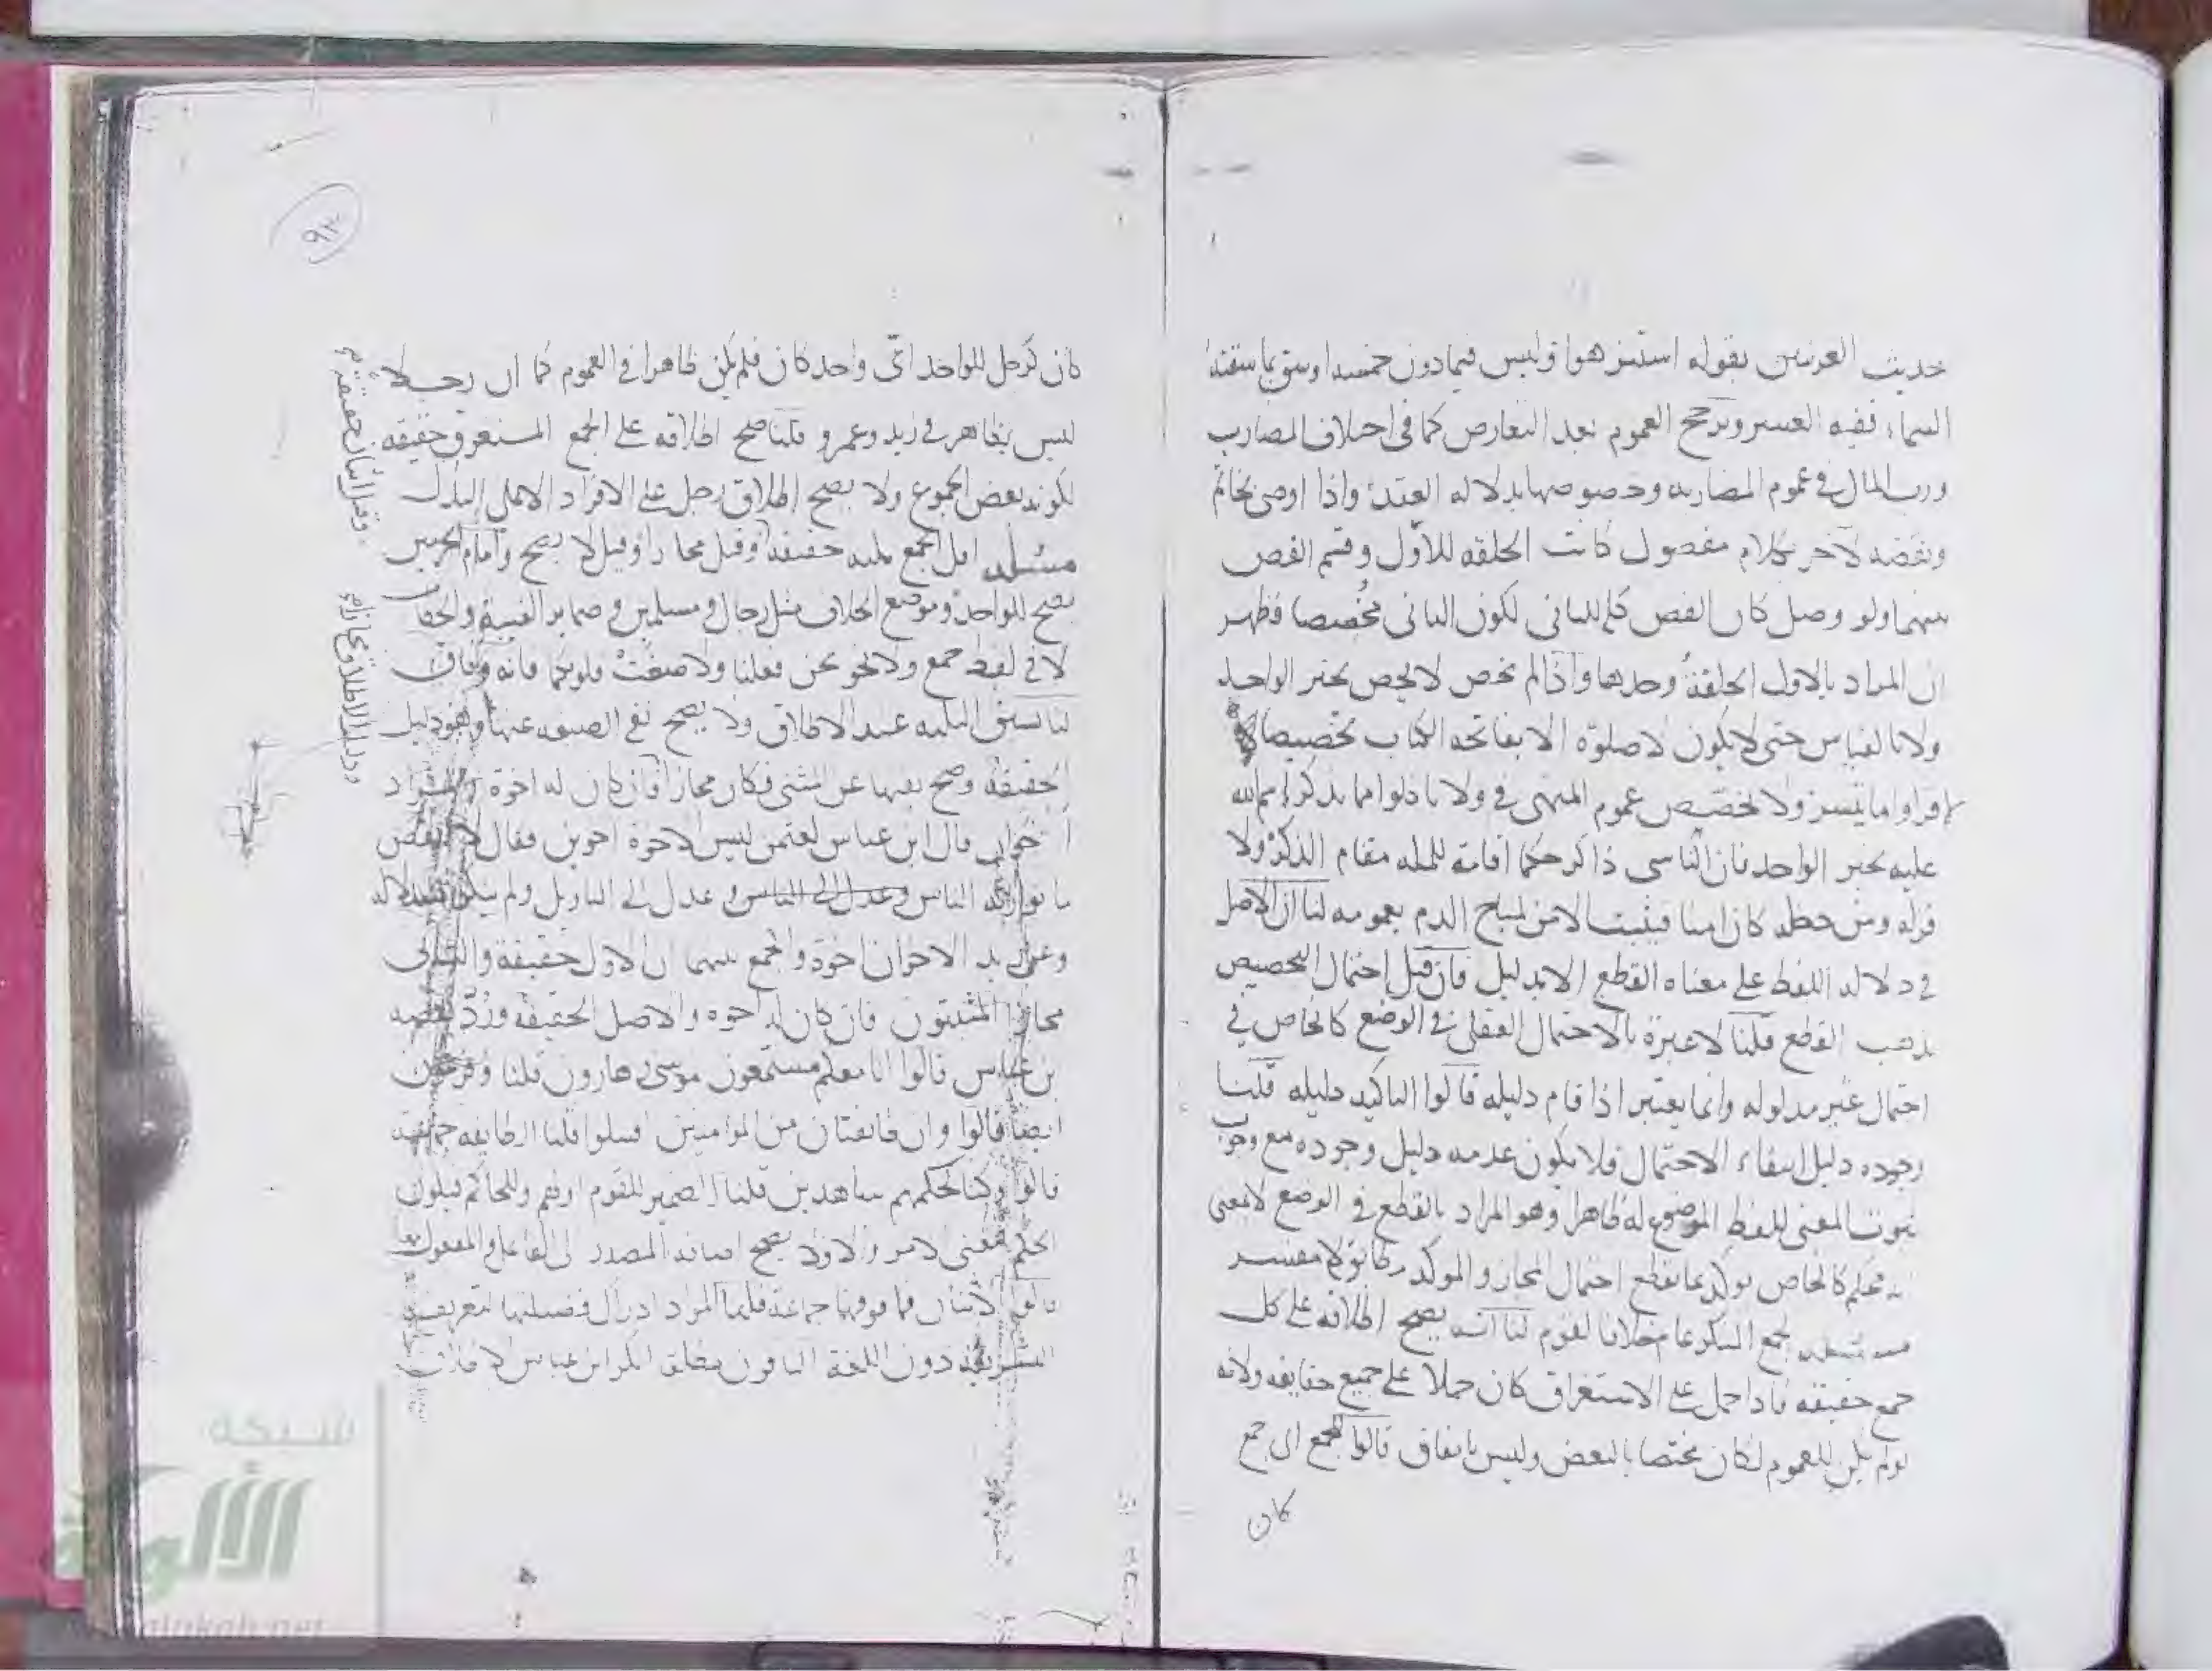 حديث العرنيين بقوله استنزهوا وليس فيما دون خمسة اوسق بما سقته
السماء ففيه العشر وترجح العموم بعد التعارض كما في اختلاف المضارب
ورب المال في عموم المضاربه وخصوصها بدلالة العقد واذا اوصى بخاتم
وبفصه لآخر بكلام مفصول كانت الحلقه للأول وقسم الفص
بينهما ولو وصل كان الفص كله للثاني لكون الثاني مخصصا فظهر
ان المراد بالاول الحلقة وحدها واذا لم يخص لا يخص بخبر الواحد
ولا بالقياس حتى لا يكون لا صلوة الا بفاتحة الكتاب تخصيصا
فاقراوا ما تيسر ولا تخصيص عموم المنهي في ولا تاكلوا مما لم يذكر اسم الله
عليه بخبر الواحد فان الناسي ذاكر حكما اقامة للمله مقام الذكر ولا
قوله ومن دخله كان امنا فيثبت الامن لمباح الدم بعمومه لنا ان الاصل
في دلالة اللفظ على معناه القطع الا بدليل فان قيل احتمال التخصيص
يذهب القطع قلنا لا عبرة بالاحتمال العقلي في الوضع كالخاص في
احتمال غير مدلوله وانما يعتبر اذا قام دليله قالوا التاكيد دليله قلنا
وجوده دليل انتفاء الاحتمال فلا يكون عدمه دليل وجوده مع وجوب
ثبوت المعنى للفظ الموضوع له ظاهرا وهو المراد بالقطع في الوضع لا بمعنى
انه محكم كالخاص يوكد بما يقطع احتمال المجاز والموكد مفسر
مسئله الجمع المنكر عام خلافا لقوم لنا انه يصح اطلاقه على كل
جمع حقيقه فاذا حمل على الاستغراق كان حملا على جميع حقايقه ولانه
لو لم يكن للعموم لكان مختصا بالبعض وليس باتفاق قالوا الجمع اي جمع
كان
٩٣
كان كرجل للواحد اي واحد كان فلم يكن ظاهرا في العموم كما ان رجلا
ليس بظاهر في زيد وعمرو قلنا صح اطلاقه على الجمع المستغرق حقيقه
لكونه بعض الجموع ولا يصح اطلاق رجل على الافراد الا على البدل
مسئله اقل الجمع ثلثه حقيقة وقيل مجازا وقيل لا يصح وامام الحرمين
يصح للواحد وموضع الخلاف مثل رجال ومسلمين وضماير الغيبة والخطاب
لا في لفظ جمع ولا نحو نحن فعلنا ولا صغت قلوبكما فانه وفاق
لنا تسبق الثلثه عند الاطلاق ولا يصح نفي الصيغه عنها وهو دليل
الحقيقة وصح نفيها عن مثنى فكان مجازا فان كان له اخوة والمراد
اخوان قال ابن عباس لعثمن ليس الاخوة اخوين فقال لا انقض
ما توارثه الناس وعدل الى التاويل ولم ينكر استدلاله
وعن زيد الاخوان اخوة والجمع بينهما ان الاول حقيقة والثاني
مجاز المثبتون فان كان له اخوه والاصل الحقيقه ورد بقصه
بن عباس قالوا انا معكم مستمعون موسى وهارون قلنا وفرعون
ايضا قالوا وان طائفتان من المؤمنين اقتتلوا قلنا الطايفه جماعة
قالوا وكنا لحكمهم شاهدين قلنا الضمير للقوم اولهم وللحاكم فيكون
الحكم بمعنى الامر والا فلا يصح اضافة المصدر الى الفاعل والمفعول
قالوا الاثنان فما فوقهما جماعة قلنا المراد ادراك فضيلتها لتعريف
الشريعة دون اللغة النافون مطلقا انكر ابن عباس الاطلاق
دليل الاطلاق مجازا
شبكة
الألوكة
alukah.net